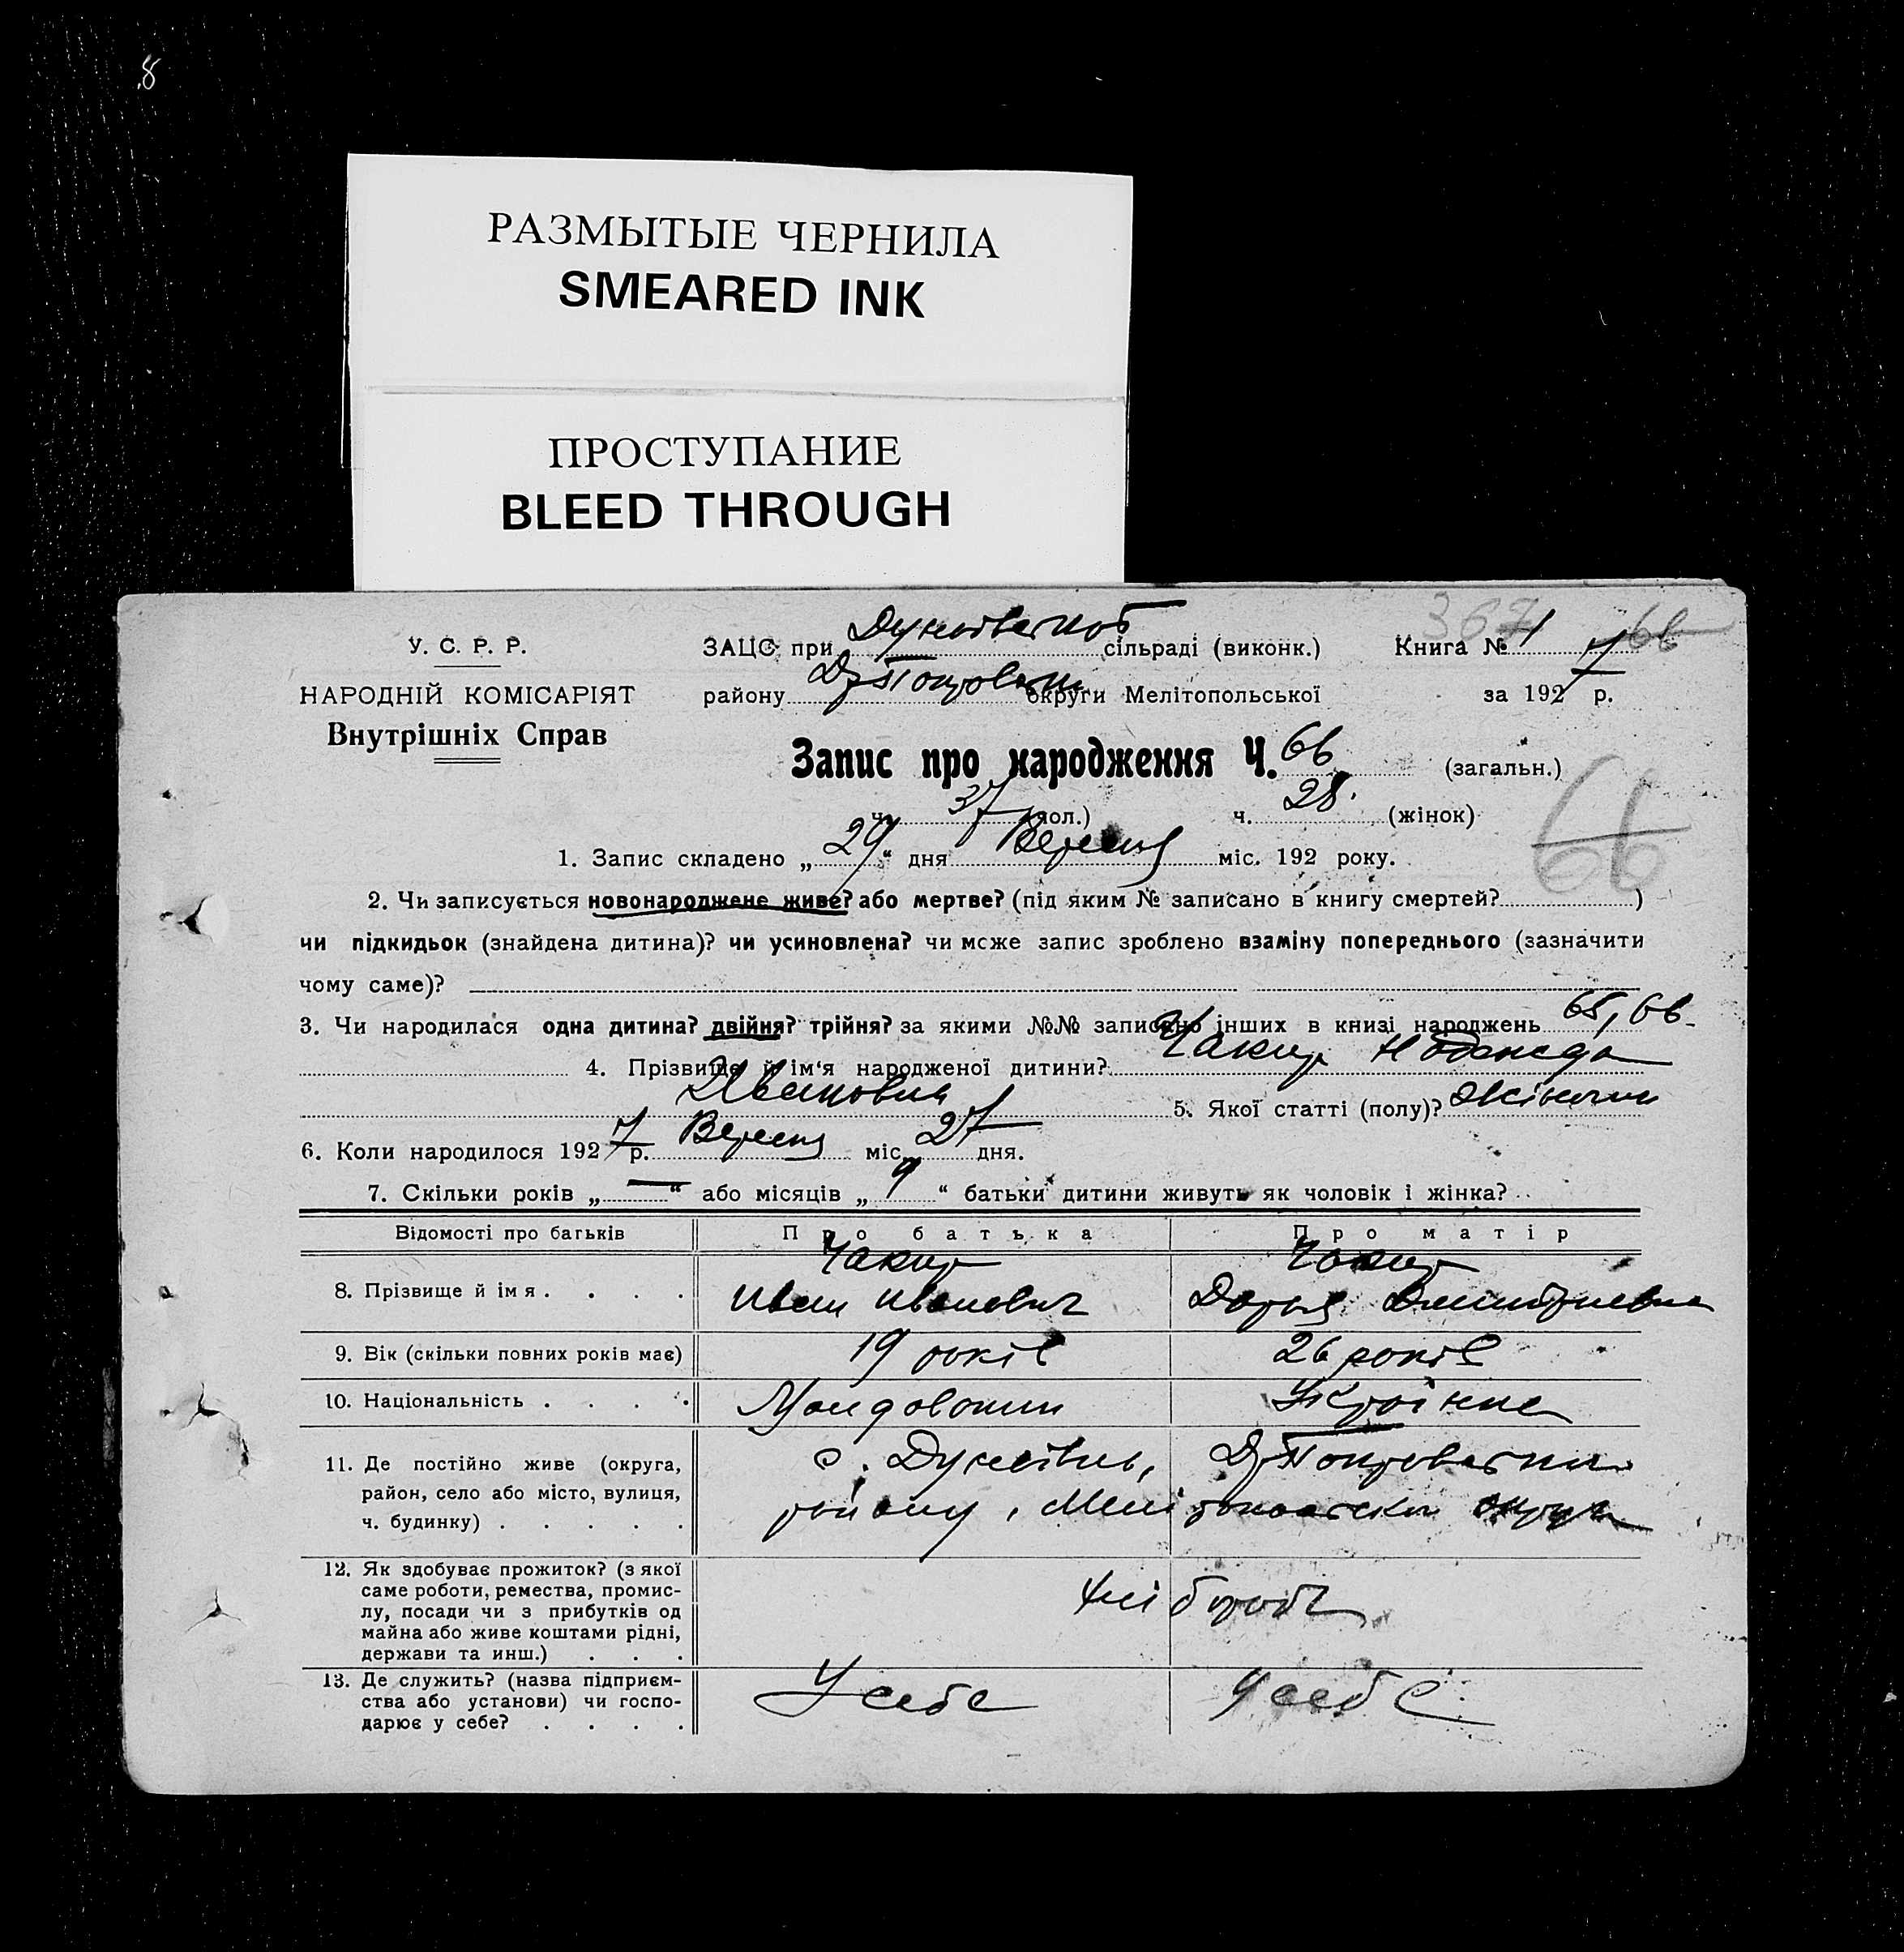 8
РАЗМЫТЫЕ ЧЕРНИЛА
SMEARED INK
ПРОСТУПАНИЕ
BLEED THROUGH
367 66
У. С. Р. Р.
ЗАЦС при сільраді (виконк.) Книга № 1
НАРОДНІЙ КОМІСАРІЯТ
району округи Мелітопольської за 1927 р.
Внутрішніх Справ
Запис про народження Ч. 66 (загальн.)
ч. 37 (чол.) ч. 28. (жінок)
66
1. Запис складено „29“ дня Вересня міс. 192 року.
2. Чи записується новонароджене живе? або мертве? (під яким № записано в книгу смертей? )
чи підкидьок (знайдена дитина)? чи усиновлена? чи може запис зроблено взаміну попереднього (зазначити
чому саме)?
3. Чи народилася одна дитина? двійня? трійня? за якими №№ записано інших в книзі народжень 65, 66
4. Прізвище й ім‘я народженої дитини? Чакир Надежда
Ивановна 5. Якої статті (полу)? Жіночи
6. Коли народилося 1927 р. Вересня міс. 27 дня.
7. Скільки років „—“ або місяців „9“ батьки дитини живуть як чоловік і жінка?
Відомості про батьків Про батька Про матір
8. Прізвище й імя Чакир Иван Иванович Чакир Дарья Дмитриевна
9. Вік (скільки повних років має) 19 років 26 років
10. Національність Молдованин Українка
11. Де постійно живе (округа, район, село або місто, вулиця, ч. будинку) с. району, Мелітопольскои округи
12. Як здобуває прожиток? (з якої саме роботи, ремества, промислу, посади чи з прибутків од майна або живе коштами рідні, держави та инш.) хлібороб
13. Де служить? (назва підприємства або установи) чи господарює у себе? У себе У себе